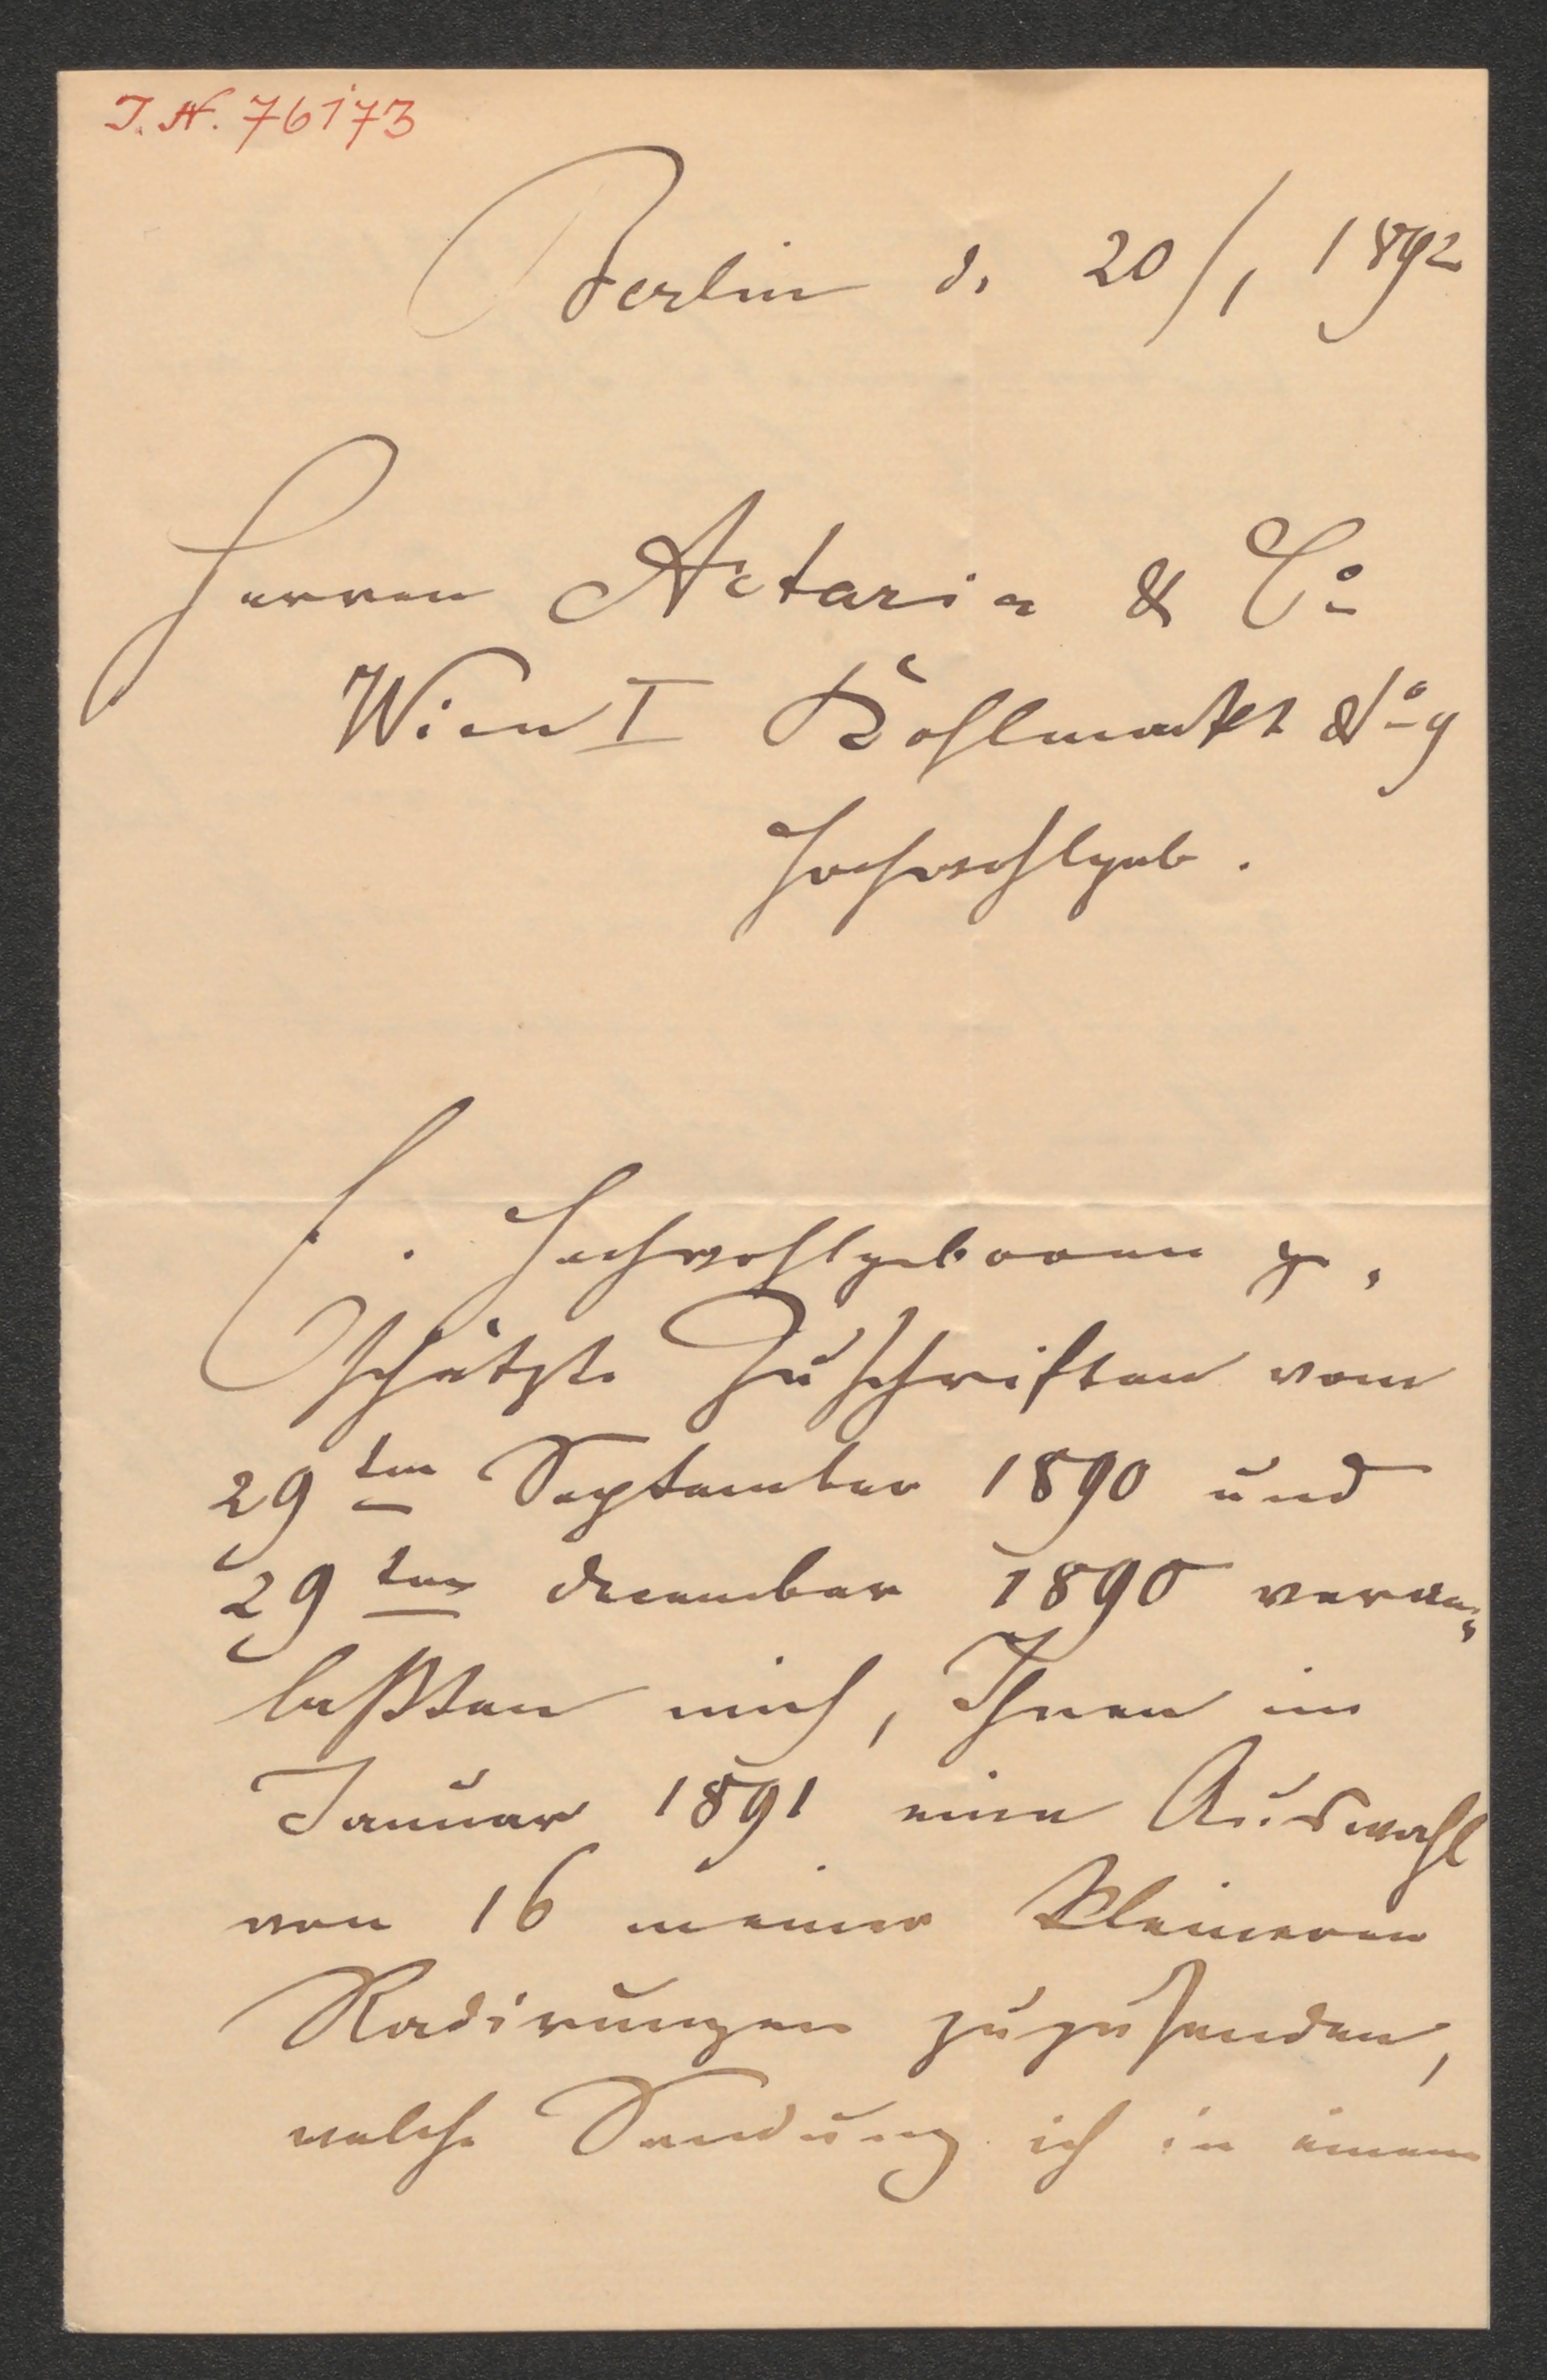 I. N. 76173
Berlin d. 20/1 1892
Herren Artaria & Co
Wien I Kohlmarkt No 9
Hochwohlgeb.
E. Hochwohlgeboren ge,
schätzte Zuschriften vom
29ten September 1890 und
29ten December 1890 veran,
laßten mich, Ihnen im
Januar 1891 eine Auswahl
von 16 meiner kleineren
Radirungen zuzusenden,
welche Sendung ich in einem